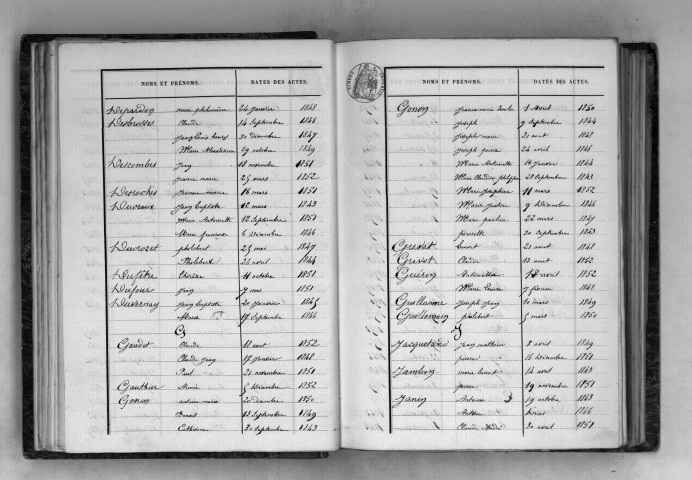 NOMS ET PRÉNOMS. DATES DES ACTES.
Depardon marie philomène 24 janvier 1848
Desbrosses Claude 14 Septembre 1846
30 décembre 1847
29 octobre 1849
Descombes Jean 18 novembre 1851
jeanne marie 25 mars 1852
Desroches marie 16 mars 1851
Ducroux Jean baptiste 12 mars 1843
Marie Antoinette 12 Septembre 1851
Marie françoise 6 décembre 1846
Ducrozet philibert 25 mai 1847
Philibert 26 avril 1844
Dufêtre Thérèse 11 octobre 1851
Dufour Jean 7 mai 1851
Duvernay Jean baptiste 20 janvier 1845
Marie 17 Septembre 1846
G
Gaudet Claude 18 aout 1852
Claude Jean 17 janvier 1848
Paul 21 novembre 1851
Gauthier 5 décembre 1852
Gonon marie 20 décembre 1850
Benoit 13 Septembre 1849
Catherine 30 Septembre 1843
NOMS ET PRÉNOMS. DATES DES ACTES.
Gonon jeanne marie 1 Avril 1850
joseph 9 Septembre 1844
joseph marie 31 aout 1848
joseph pierre 24 avril 1846
Marie Antoinette 16 janvier 1844
Marie Claudine 28 Septembre 1843
Marie joséphine 11 mars 1852
Marie 9 décembre 1846
Marie pauline 22 mars 1847
pierrette 20 Septembre 1843
benoit 21 aout 1848
Grisot Claude 13 aout 1852
Guéron Antoinette avril 1852
Marie Louise 7 février 1848
Guillaume Joseph Jean 10 mars 1849
Guillermin philibert 5 mars 1850
J
Jean mathieu 8 avril 1849
pierre 16 décembre 1851
Jambon marie benoit 14 avril 1843
pierre 19 novembre 1851
Janin Antoine 19 octobre 1843
1846
Claude 30 avril 1851